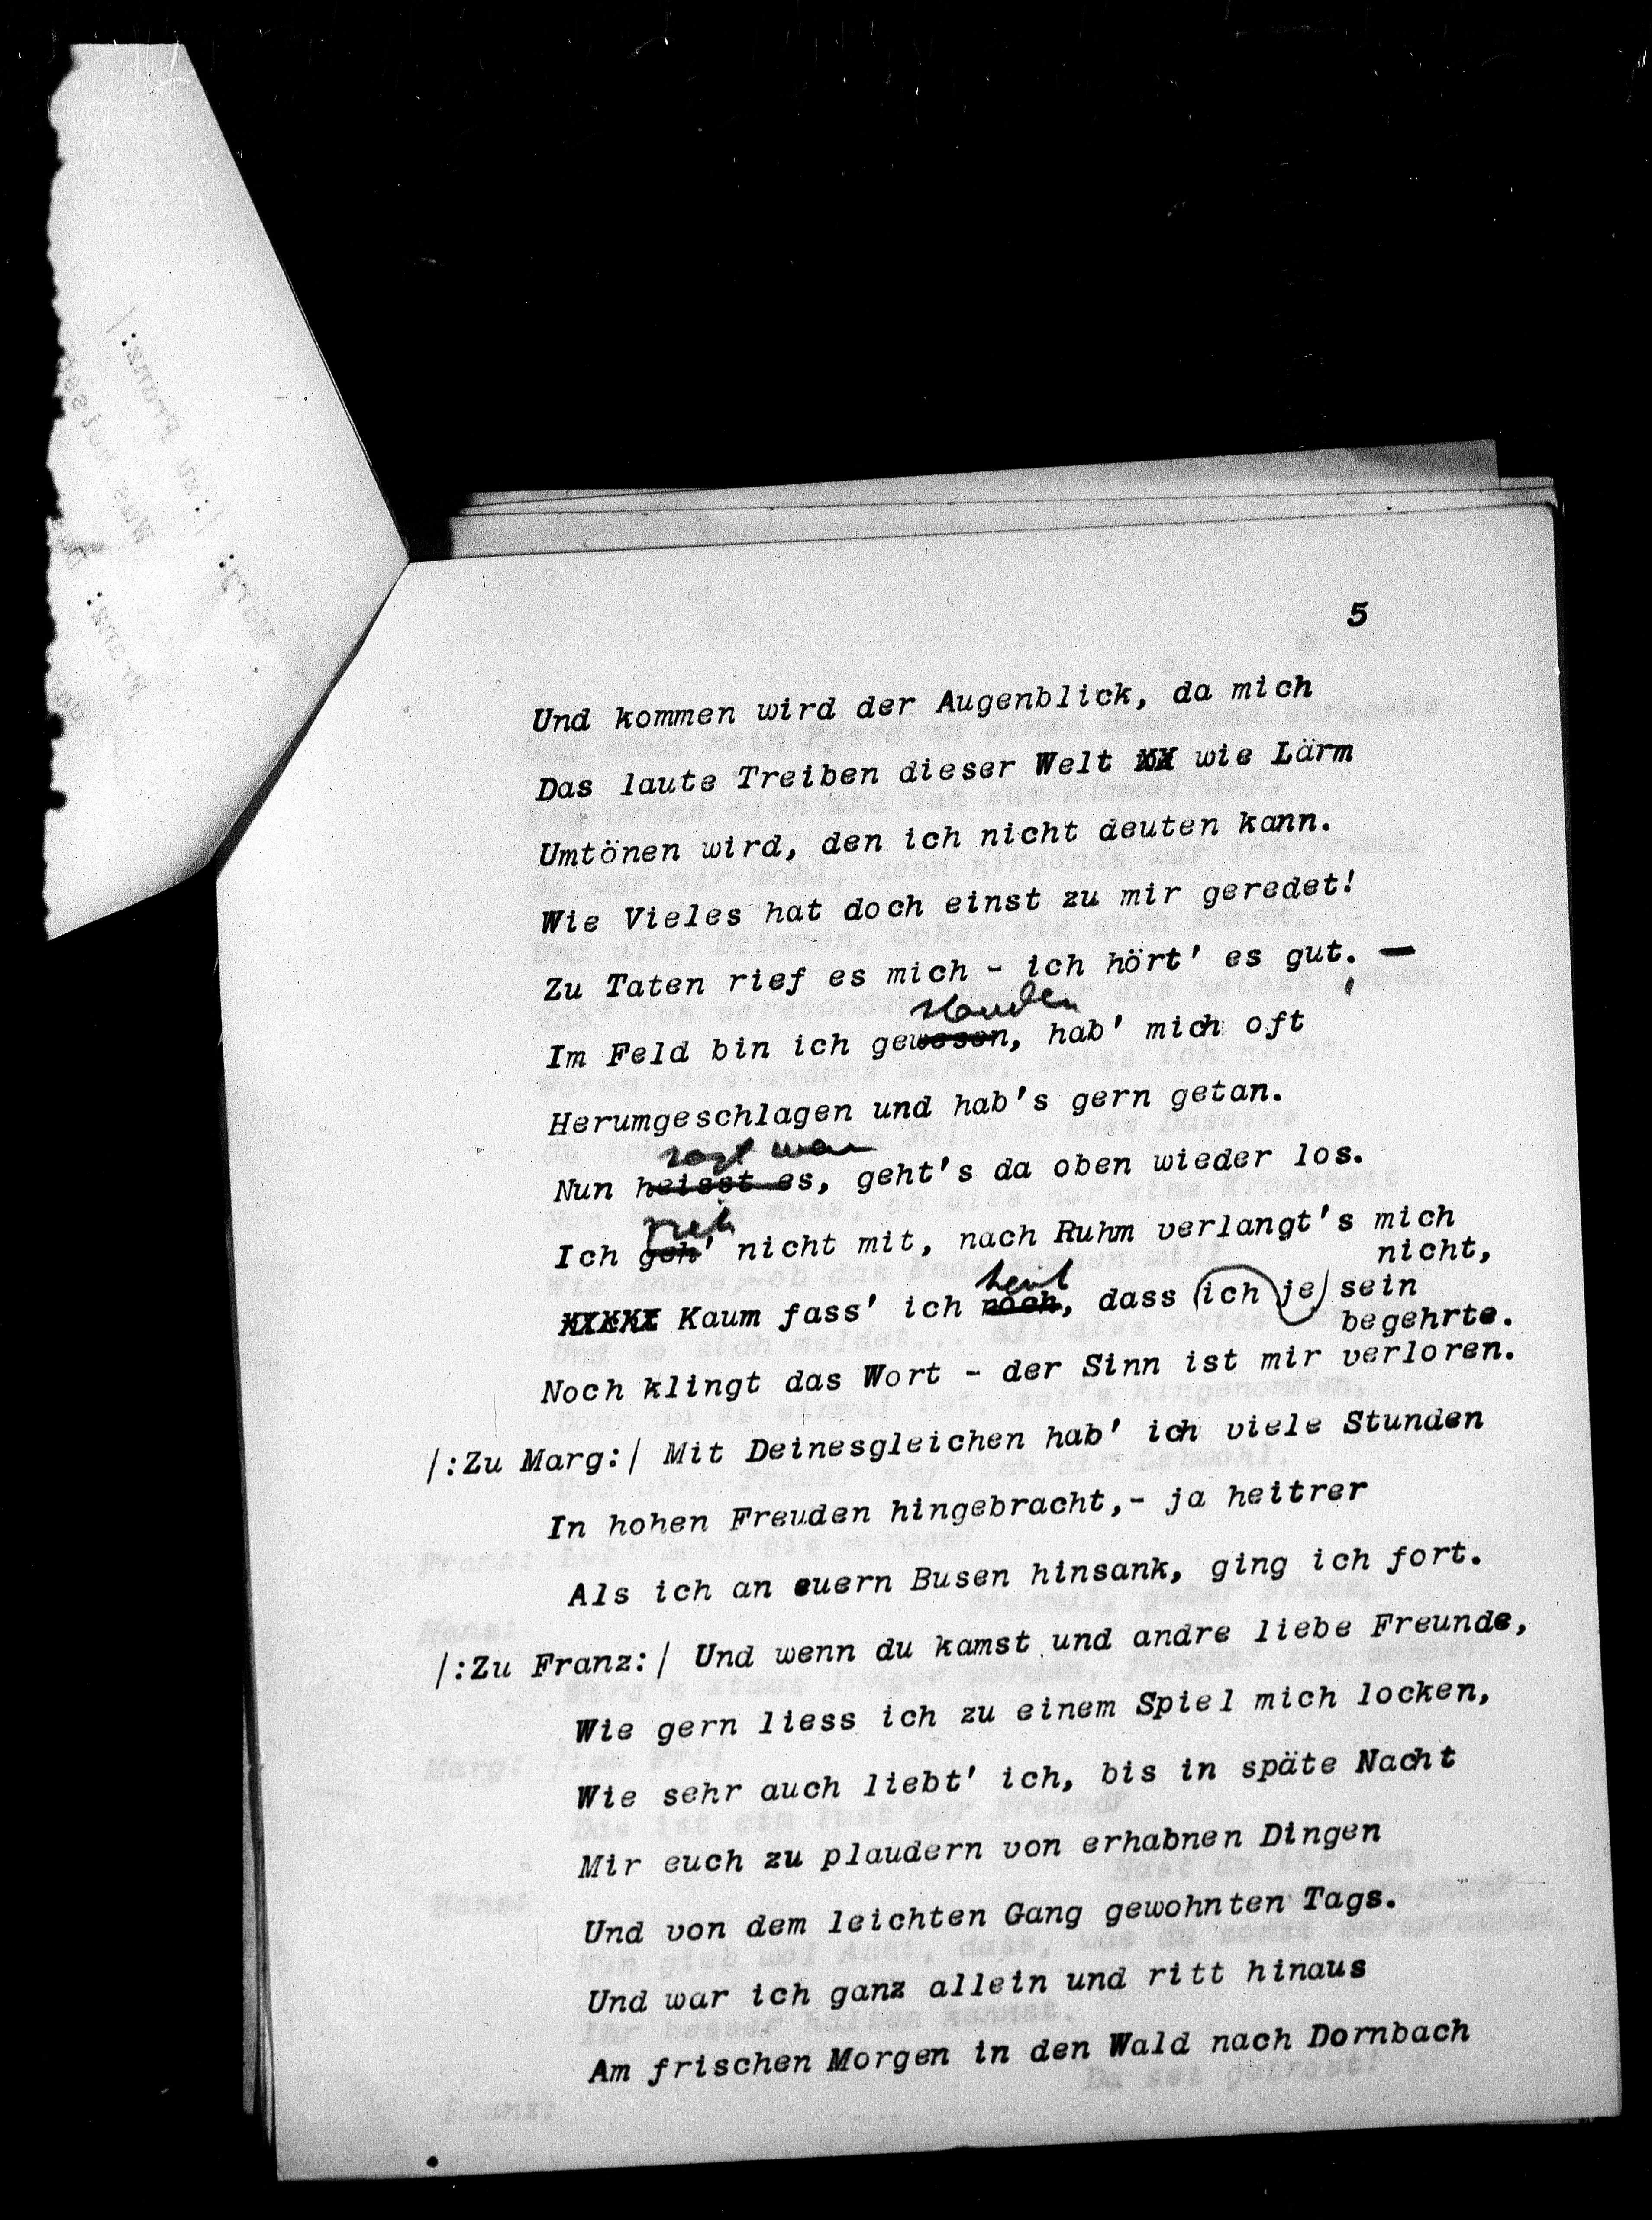 5
Und kommen wird der Augenblick, da mich
Das laute Treiben dieser Welt wie Lärm
Umtönen wird, den ich nicht deuten kann.
Wie Vieles hat doch einst zu mir geredet!
Zu Taten rief es mich - ich hört' es gut. —
standen
Im Feld bin ich gewesen, hab' mich oft
Herumgeschlagen und hab's gern getan.
sagt man
Nun heisst es, geht's da oben wieder los.
Ich geh' nicht mit, nach Ruhm verlangt's mich
nicht,
heut
Kaum fass' ich noch, dass ich je sein
begehrte.
Noch klingt das Wort - der Sinn ist mir verloren.
/:Zu Marg:/ Mit Deinesgleichen hab' ich viele Stunden
In hohen Freuden hingebracht,- ja heitrer
Als ich an euern Busen hinsank, ging ich fort.
/:Zu Franz:/ Und wenn du kamst und andre liebe Freunde,
Wie gern liess ich zu einem Spiel mich locken,
Wie sehr auch liebt' ich, bis in späte Nacht
Mir euch zu plaudern von erhabnen Dingen
Und von dem leichten Gang gewohnten Tags.
Und war ich ganz allein und ritt hinaus
Am frischen Morgen in den Wald nach Dornbach